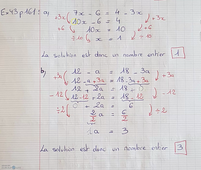 Ex 43 p 161: a) 7x - 6 = 4 - 3x
+3x +3x
10x - 6 = 4
+6 +6
10x = 10
÷10 ÷10
x = 1
La solution est donc un nombre entier 1
b) 12 - a = 18 - 3a
+3a +3a
12 - a + 3a = 18 - 3a + 3a
12 + 2a = 18
-12 -12
12 - 12 + 2a = 18 - 12
0 + 2a = 6
÷2 ÷2
a = 3
La solution est donc un nombre entier 3